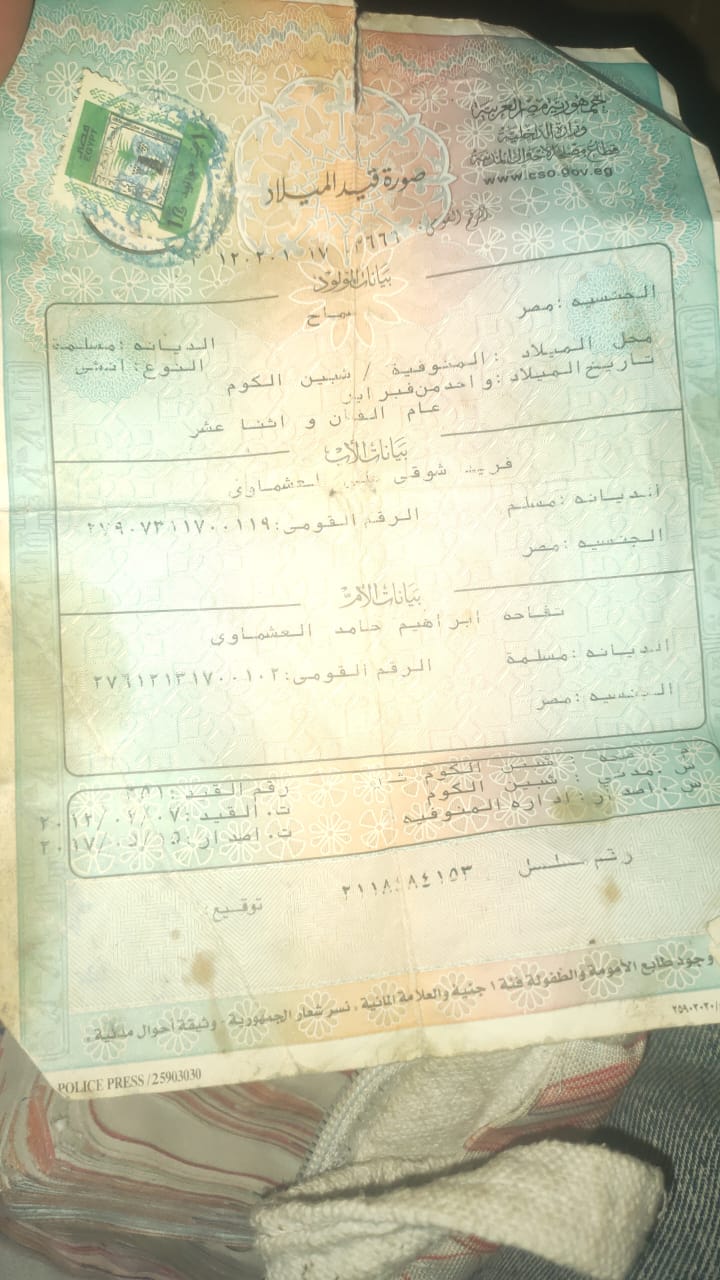 جمهورية مصر العربية
وزارة الداخلية
قطاع مصلحة الأحوال المدنية
www.cso.gov.eg
مصر
EGYPT
صورة قيد الميلاد
الرقم القومى:
بيانات المولود
سماح
الجنسيه :مصر
الديانه :مسلمة
محل الميلاد : المنوفية / شبين الكوم
النوع: انثى
تاريخ الميلاد :واحد من فبراير
عام الفان و اثنا عشر
بيانات الأب
فريد شوقى العشماوى
الديانه :مسلم
الرقم القومى: ٢٧٩٠٧٣١١٧٠٠١١٩
الجنسيه :مصر
بيانات الأم
تفاحه ابراهيم حامد العشماوى
الديانه :مسلمة
الرقم القومى:٢٧٦١٢١٣١٧٠٠١٠٢
الجنسيه :مصر
شبين الكوم
رقم القيد :
س .مدني : شبين الكوم
ت. القيد :٢٠١٢/٠٢/٠٧
س .اصدار: اداره المنوفيه
ت. اصدار:
رقم مسلسل
توقيع:
وجود طابع الأمومة والطفولة فئة ١ جنيه والعلامة المائية ، نسر شعار الجمهورية - وثيقة أحوال مدنية .
POLICE PRESS /25903030